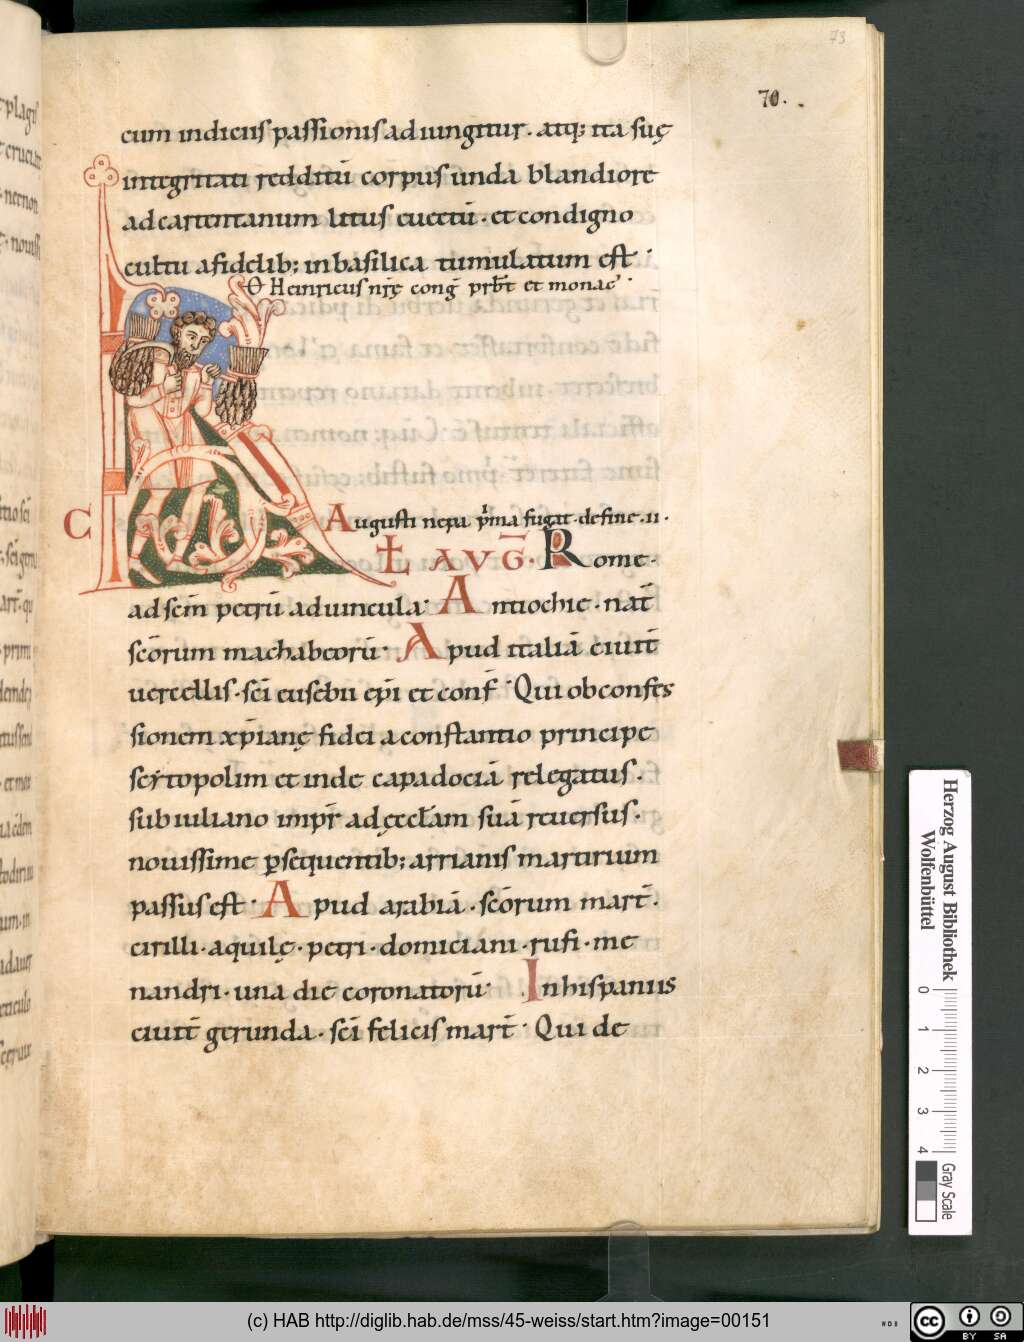 73
70.
cum indiciis passionis adiungitur. atq; ita suę
integritati redditū corpus unda blandiore
ad cartentanum litus euectū. et condigno
cultu a fidelib; in basilica tumulatum est.
O Heinricus nr̄ę cong̃ prb̄t et monac̄
C Augusti nepa p̍ma fugat de fine .ii.
Ł AVḠ. Rome.
ad sc̄m petrū ad uincula. Antiochie. nat̄
sc̄orum machabeorū. Apud italiā ciuit̄
uercellis. sc̄i eusebii ep̄i et conf̄. Qui ob confes
sionem xp̄ianę fidei a constantio principe
scytopolim et inde capadociā relegatus.
sub iuliano imp̄r ad ęccl̄am suā reuersus.
nouissime ꝑsequentib; arrianis martirium
passus est. Apud arabiā. sc̄orum mart̄.
cirilli. aquilę. petri. domiciani. rufi. me
nandri. una die coronatorū. In hispaniis
ciuit̄ gerunda. sc̄i felicis mart̄. Qui de
Herzog August Bibliothek
Wolfenbüttel
0 1 2 3 4
Gray Scale
(c) HAB http://diglib.hab.de/mss/45-weiss/start.htm?image=00151
cc BY SA